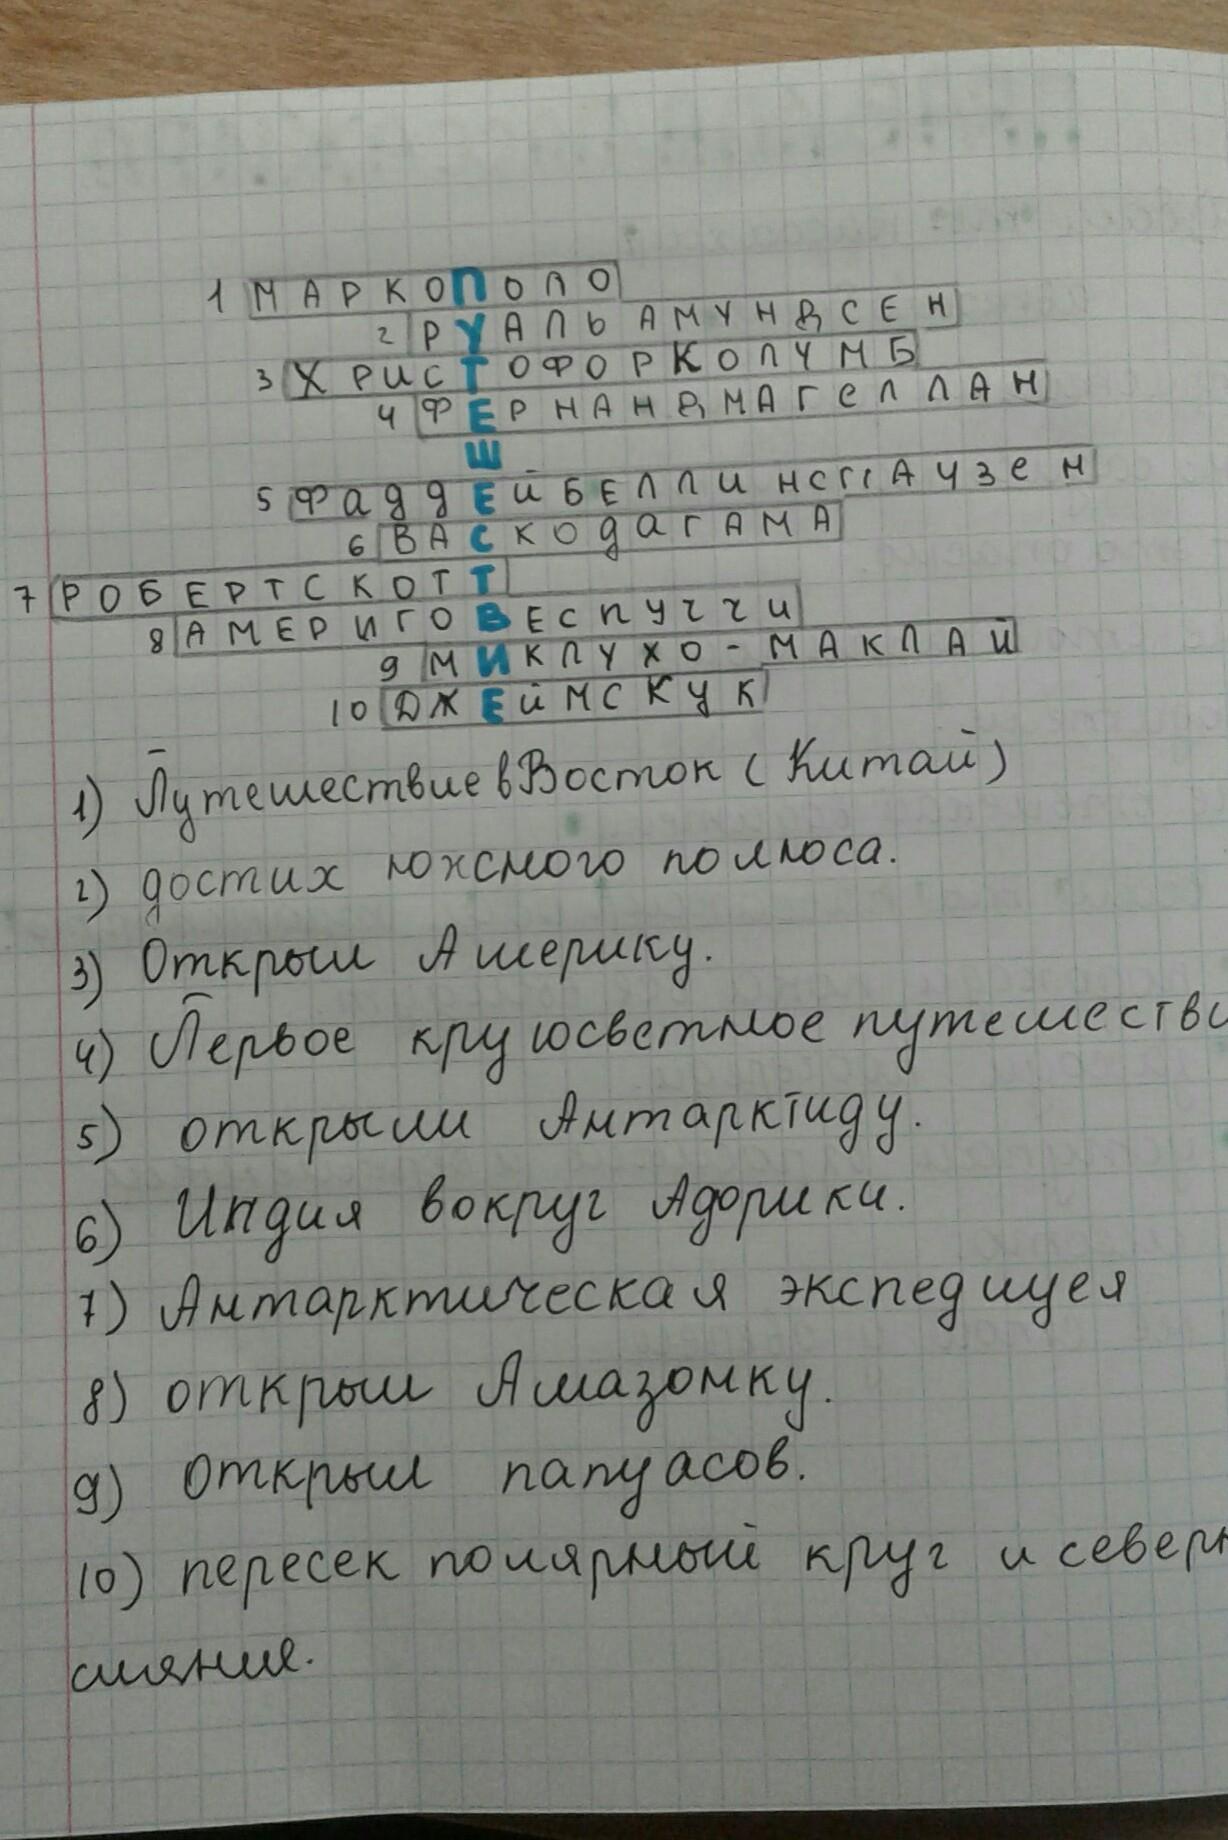 1 МАРКОПОЛО
2 РУАЛЬ АМУНДСЕН
3 ХРИСТОФОРКОЛУМБ
4 ФЕРНАНДМАГЕЛЛАН
Ш
5 ФАДДЕЙБЕЛЛИНСГАУЗЕН
6 ВАСКОДАГАМА
7 РОБЕРТСКОТТ
8 АМЕРИГОВЕСПУЧЧИ
9 МИКЛУХО-МАКЛАЙ
10 ДЖЕЙМСКУК
1) Путешествие в Восток (Китай)
2) достих южного полюса.
3) Открыл Америку.
4) Первое кругосветное путешестви
5) открыли Антарктиду.
6) Индия вокруг Африки.
7) Антарктическая экспедицея
8) открыл Амазонку.
9) открыл папуасов.
10) пересек полярный круг и северн
сияния.